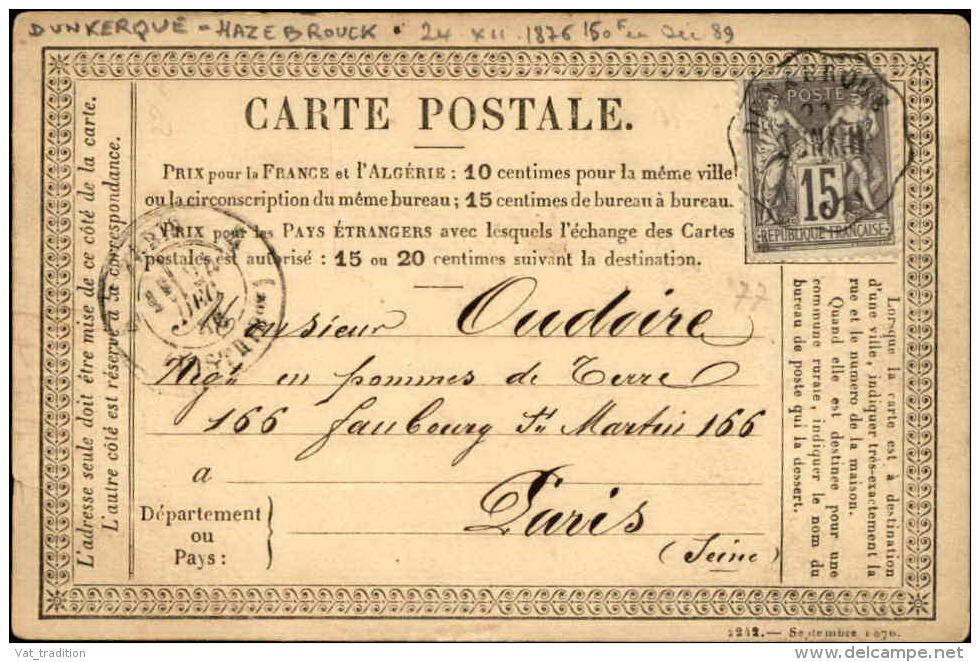 DUNKERQUE - HAZEBROUCK • 24 XII 1876 150F en Déc 89
CARTE POSTALE.
PRIX pour la FRANCE et l'ALGÉRIE : 10 centimes pour la même ville
ou la circonscription du même bureau ; 15 centimes de bureau à bureau.
PRIX pour les PAYS ÉTRANGERS avec lesquels l'échange des Cartes
postales est autorisé : 15 ou 20 centimes suivant la destination.
POSTE
15
REPUBLIQUE FRANÇAISE
L'adresse seule doit être mise de ce côté de la carte.
L'autre côté est réservé à la correspondance.
PARIS
DEC
77
Monsieur Oudoire
Négt en pommes de Terre
166 faubourg St Martin 166
a
Paris
(Seine)
Département
ou
Pays :
Lorsque la carte est à destination
d'une ville, indiquer très-exactement la
rue et le numero de la maison.
Quand elle est destinée pour une
commune rurale, indiquer le nom du
bureau de poste qui la dessert.
2212. — Septembre 1876.
Vat_tradition
www.delcampe.net